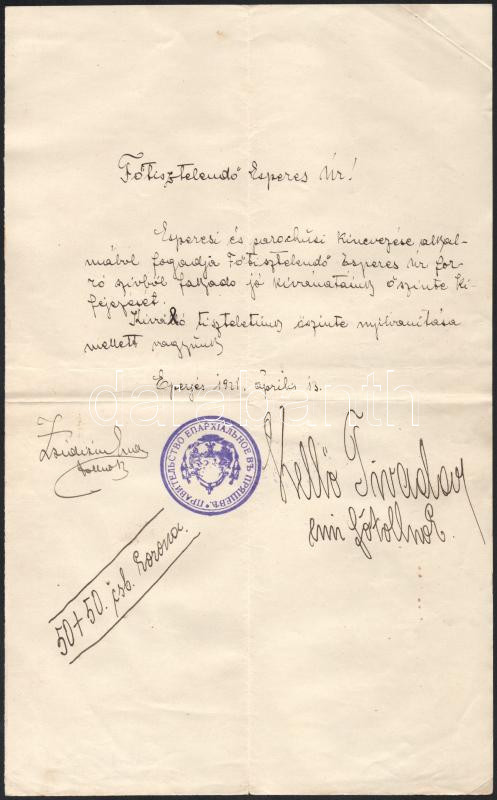 Főtisztelendő Esperes Úr!
Esperesi és parochusi kinevezése alkal-
mából fogadja Főtisztelendő Esperes Úr for-
ró szívből fakadó jó kívánataink őszinte ki-
fejezését.
Kiváló tiszteletünk őszinte nyilvánítása
mellett vagyunk
Eperjes 1921. április 13.
ПРАВИТЕЛЬСТВО ЕПАРХІАЛЬНОЕ ВЪ ПРЯШЕВѢ
Mellő Tivadar
emi főtollnok.
tollnok
50+50. čsl. korona.
darabanth